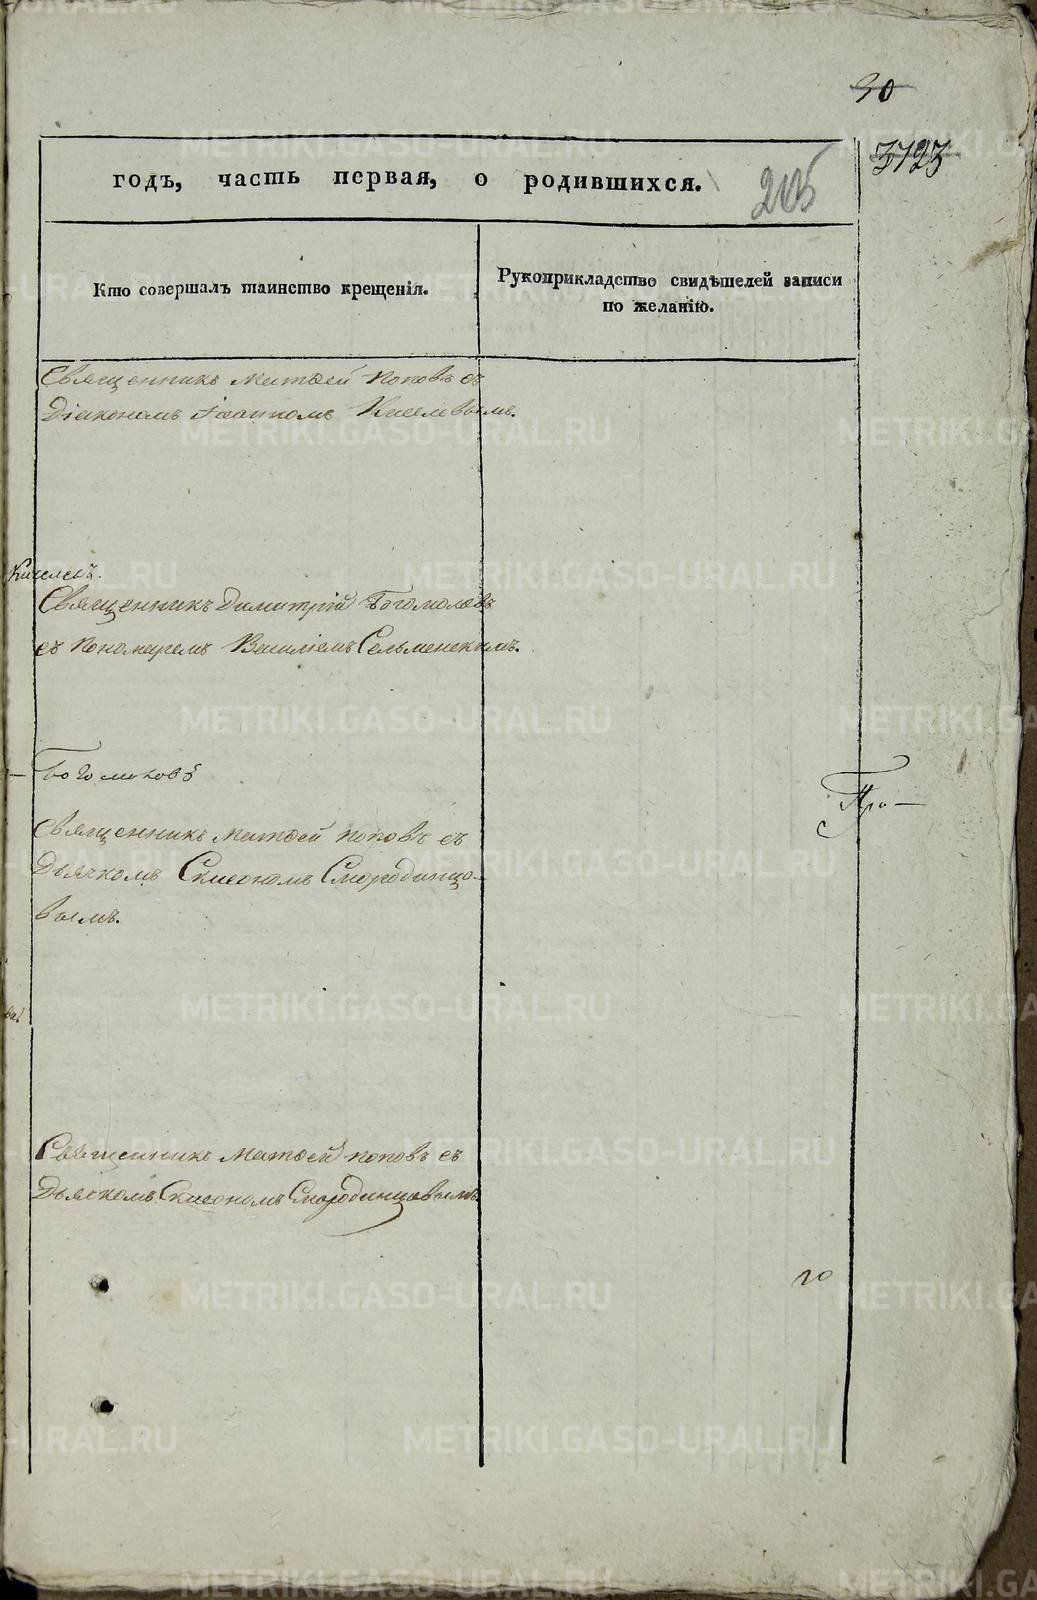 30
3723
годъ, часть первая, о родившихся.
205
Кто совершалъ таинство крещенія.
Рукоприкладство свидѣтелей записи
по желанію.
Священникъ Матѳей Поповъ съ
Діякономъ Іоанномъ Киселевымъ.
Киселевъ.
Священникъ Димитрій Богомоловъ
съ Пономаремъ Василіемъ Сельменскимъ.
Священникъ Матѳей Поповъ съ
Дьячкомъ Симеономъ Смородинцо-
вымъ.
Священникъ Матѳей Поповъ съ
Дьячкомъ Симеономъ Смородинцовымъ
METRIKI.GASO-URAL.RU